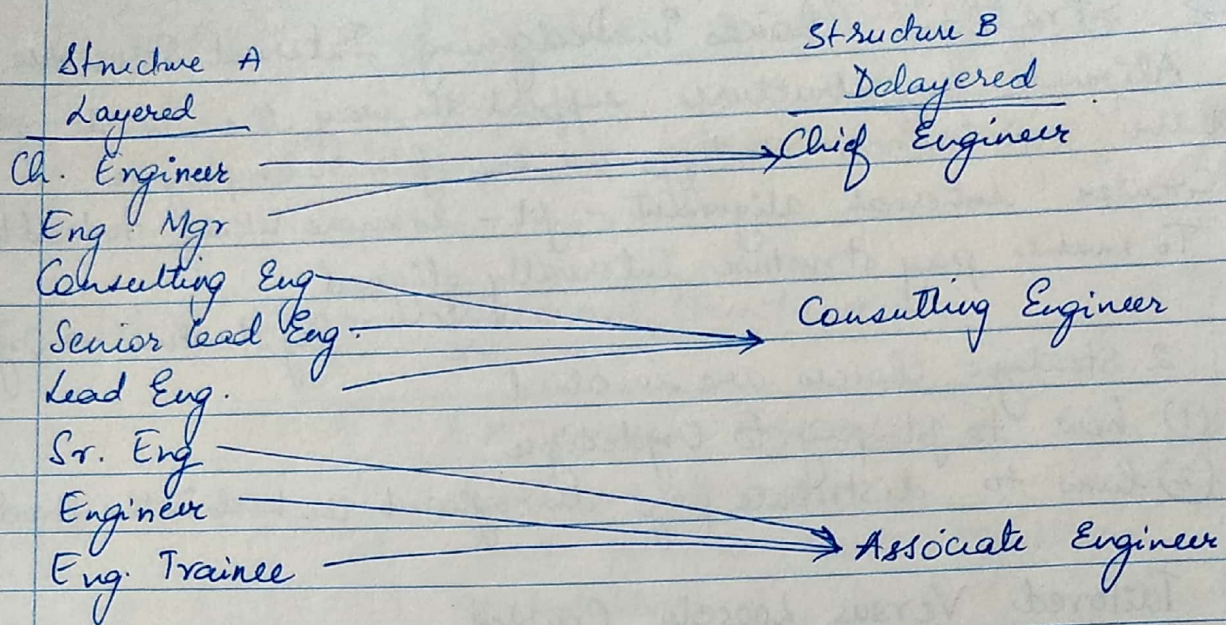 Structure A
Layered
Ch. Engineer
Eng. Mgr
Consulting Eng
Senior lead Eng.
Lead Eng.
Sr. Eng
Engineer
Eng. Trainee
Structure B
Delayered
Chief Engineer
Consulting Engineer
Associate Engineer